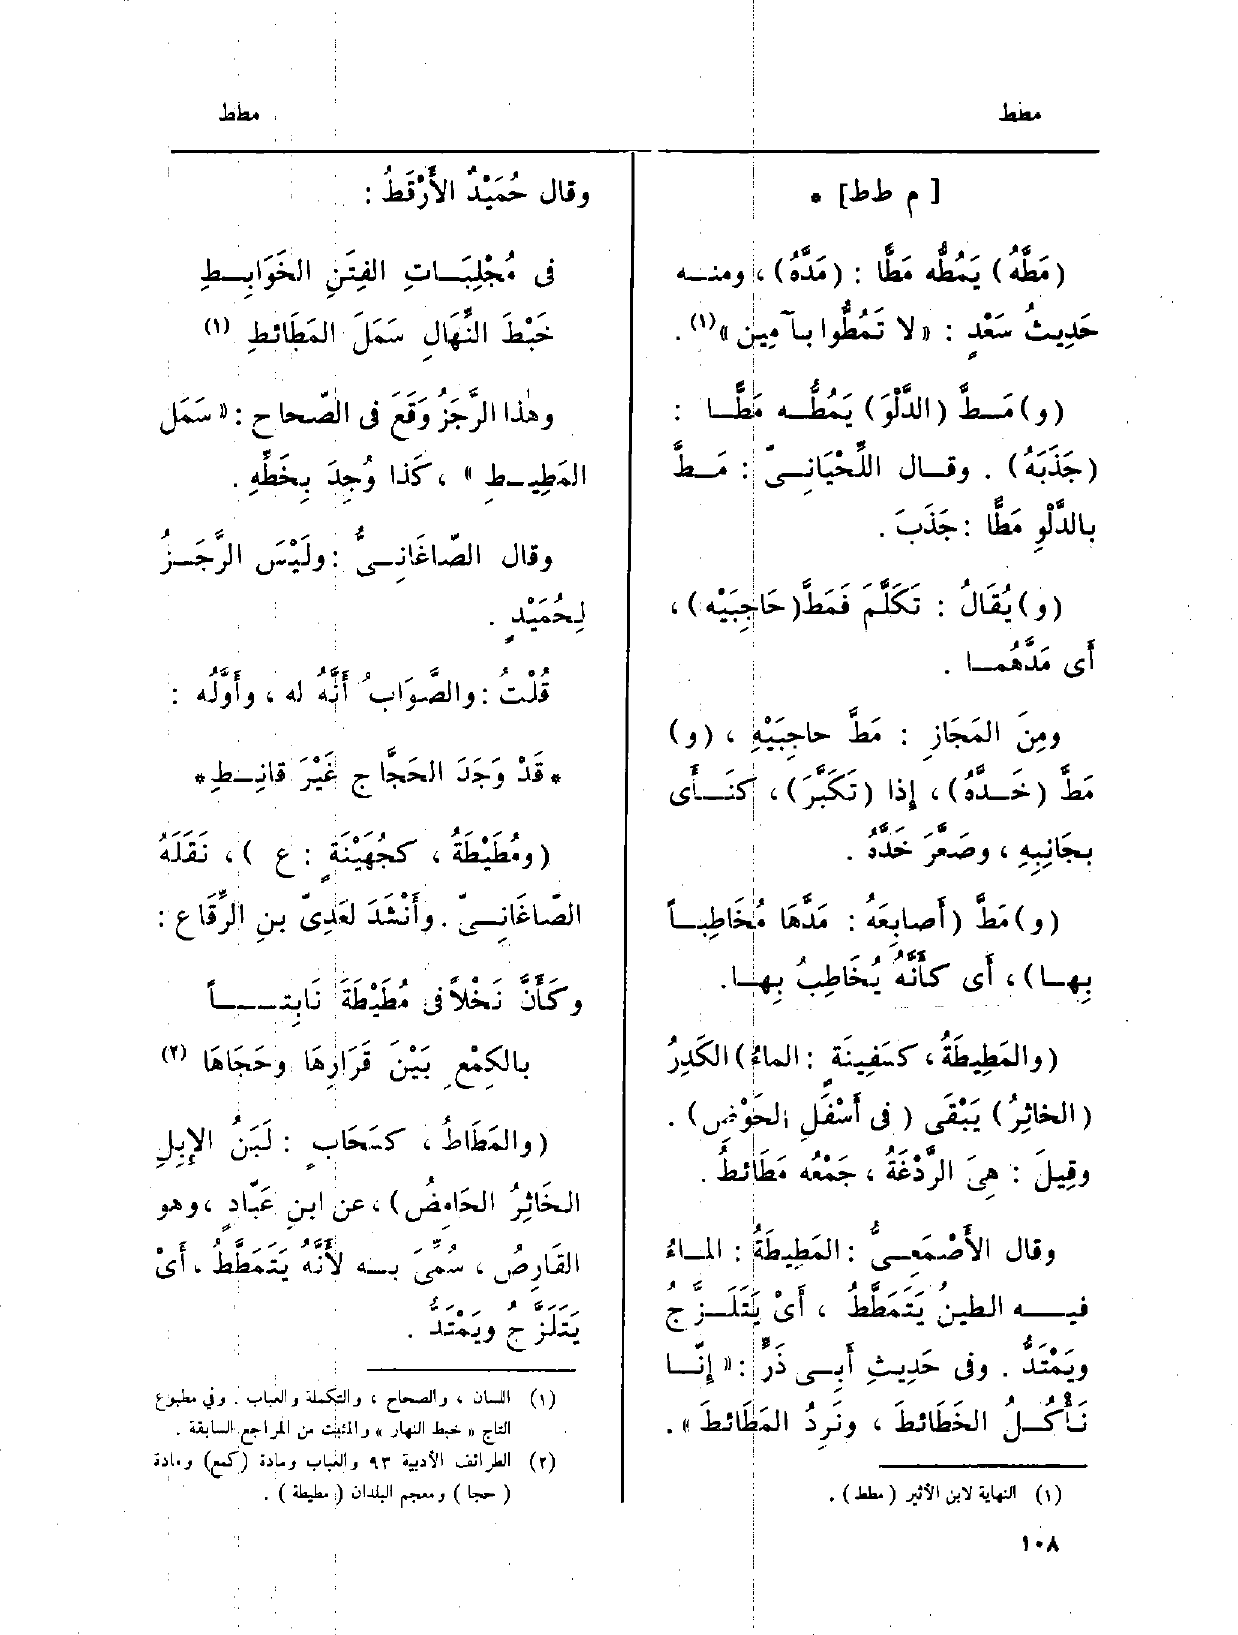 مطط
مطط
[ م ط ط ] *
(مَطَّهُ) يَمُطُّه مَطًّا : (مَدَّهُ) ، ومنــه
حَدِيثُ سَعْدٍ : «لا تَمُطُّوا بآمِين»(١) .
(و) مَــطَّ (الدَّلْوَ) يَمُطُّــه مَطًّــا :
(جَذَبَهُ) . وقــال اللِّحْيَانِــىّ : مَــطَّ
بالدَّلْوِ مَطًّا : جَذَبَ .
(و) يُقَالُ : تَكَلَّمَ فَمَطَّ (حَاجِبَيْه) ،
أى مَدَّهُمــا .
ومِنَ المَجَازِ : مَطَّ حاجِبَيْهِ ، (و)
مَطَّ (خَــدَّهُ) ، إذا (تَكَبَّرَ) ، كَنَــأَى
بجَانِبِهِ ، وصَعَّرَ خَدَّهُ .
(و) مَطَّ (أصابِعَهُ : مَدَّهَا مُخَاطِبــاً
بِهــا) ، أى كأَنَّهُ يُخَاطِبُ بِهــا .
(والمَطِيطَةُ ، كسَفِينَةٍ : الماءُ) الكَدِرُ
(الخاثِرُ) يَبْقَى (فى أَسْفَلِ الحَوْضِ) .
وقِيلَ : هِىَ الرَّدْغَةُ ، جَمْعُه مَطَائطُ .
وقال الأَصْمَعِــىُّ : المَطِيطَةُ : المــاءُ
فيــــه الطينُ يَتَمَطَّطُ ، أَىْ يَتَلَــزَّجُ
ويَمْتَدُّ . وفى حَدِيثِ أَبِــى ذَرٍّ : «إنَّــا
نَــأْكُــلُ الخَطَائطَ ، ونَرِدُ المَطَائطَ» .
(١) النهاية لابن الأثير ( مطط ) .
١٠٨
وقال حُمَيْدٌ الأَرْقَطُ :
فى مُجْلِبَــاتِ الفِتَنِ الخَوَابِــطِ
خَبْطَ النِّهَالِ سَمَلَ المَطَائطِ (١)
وهٰذا الرَّجَزُ وَقَعَ فى الصّحاح : «سَمَل
المَطِيــطِ » ، كَذا وُجِدَ بِخَطِّهِ .
وقال الصّاغَانِــىُّ : ولَيْسَ الرَّجَــزُ
لِحُمَيْدٍ .
قُلْتُ : والصَّوَابُ أَنَّهُ له ، وأَوَّلُه :
*قَدْ وَجَدَ الحَجَّاجُ غَيْرَ قانِــطِ*
(ومُطَيْطَةُ ، كجُهَيْنَةٍ : ع ) ، نَقَلَهُ
الصّاغَانِــىّ . وأَنْشَدَ لعَدِىّ بنِ الرِّقَاع :
وكَأَنَّ نَخْلاً فى مُطَيْطَةَ نَابِتــــاً
بالكِمْعِ بَيْنَ قَرَارِهَا وحَجَاهَا (٢)
(والمَطَاطُ ، كسَحَابٍ : لَبَنُ الإبِلِ
الخَاثِرُ الحَامِضُ) ، عن ابنِ عَبّادٍ ، وهو
القَارِصُ ، سُمِّىَ بــه لأَنَّهُ يَتَمَطَّطُ ، أَىْ
يَتَلَزَّجُ ويَمْتَدُّ .
(١) اللسان ، والصحاح ، والتكملة والعباب . وفي مطبوع
التاج « خبط النهار » والمثبت من المراجع السابقة .
(٢) الطرائف الأدبية ٩٣ والعباب ومادة (كمع) ومادة
( حجا ) ومعجم البلدان ( مطيطة ) .